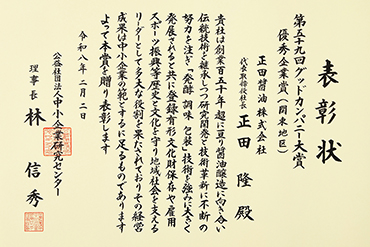 表彰状
第五十九回グッドカンパニー大賞
優秀企業賞（関東地区）
正田醤油株式会社
代表取締役社長 正田 隆 殿
貴社は創業百五十年超に亘り醤油醸造に向き合い
伝統技術を継承しつつ研究開発と技術革新に不断の
努力を注ぎ「発酵 調味 包装」技術を強みに大きく
発展されると共に登録有形文化財保存や雇用
スポーツ振興等歴史と文化を守り地域社会を支える
リーダーとして多大な役割を果たされておりその経営
成果は中小企業の範とするに足るものであります
よって本賞を贈り表彰します
令和八年二月二日
公益社団法人中小企業研究センター
理事長 林 信秀